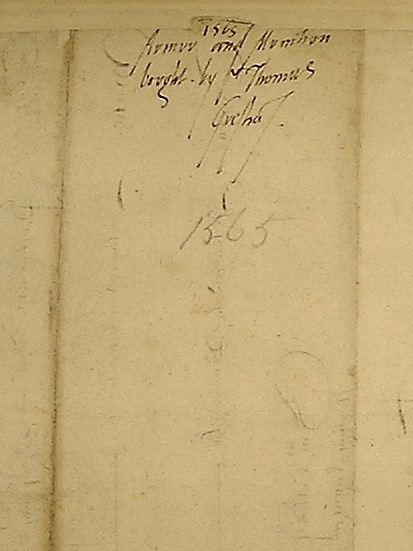 1565
Armor and Munition
bought by Sr Thomas
Gresha
1565